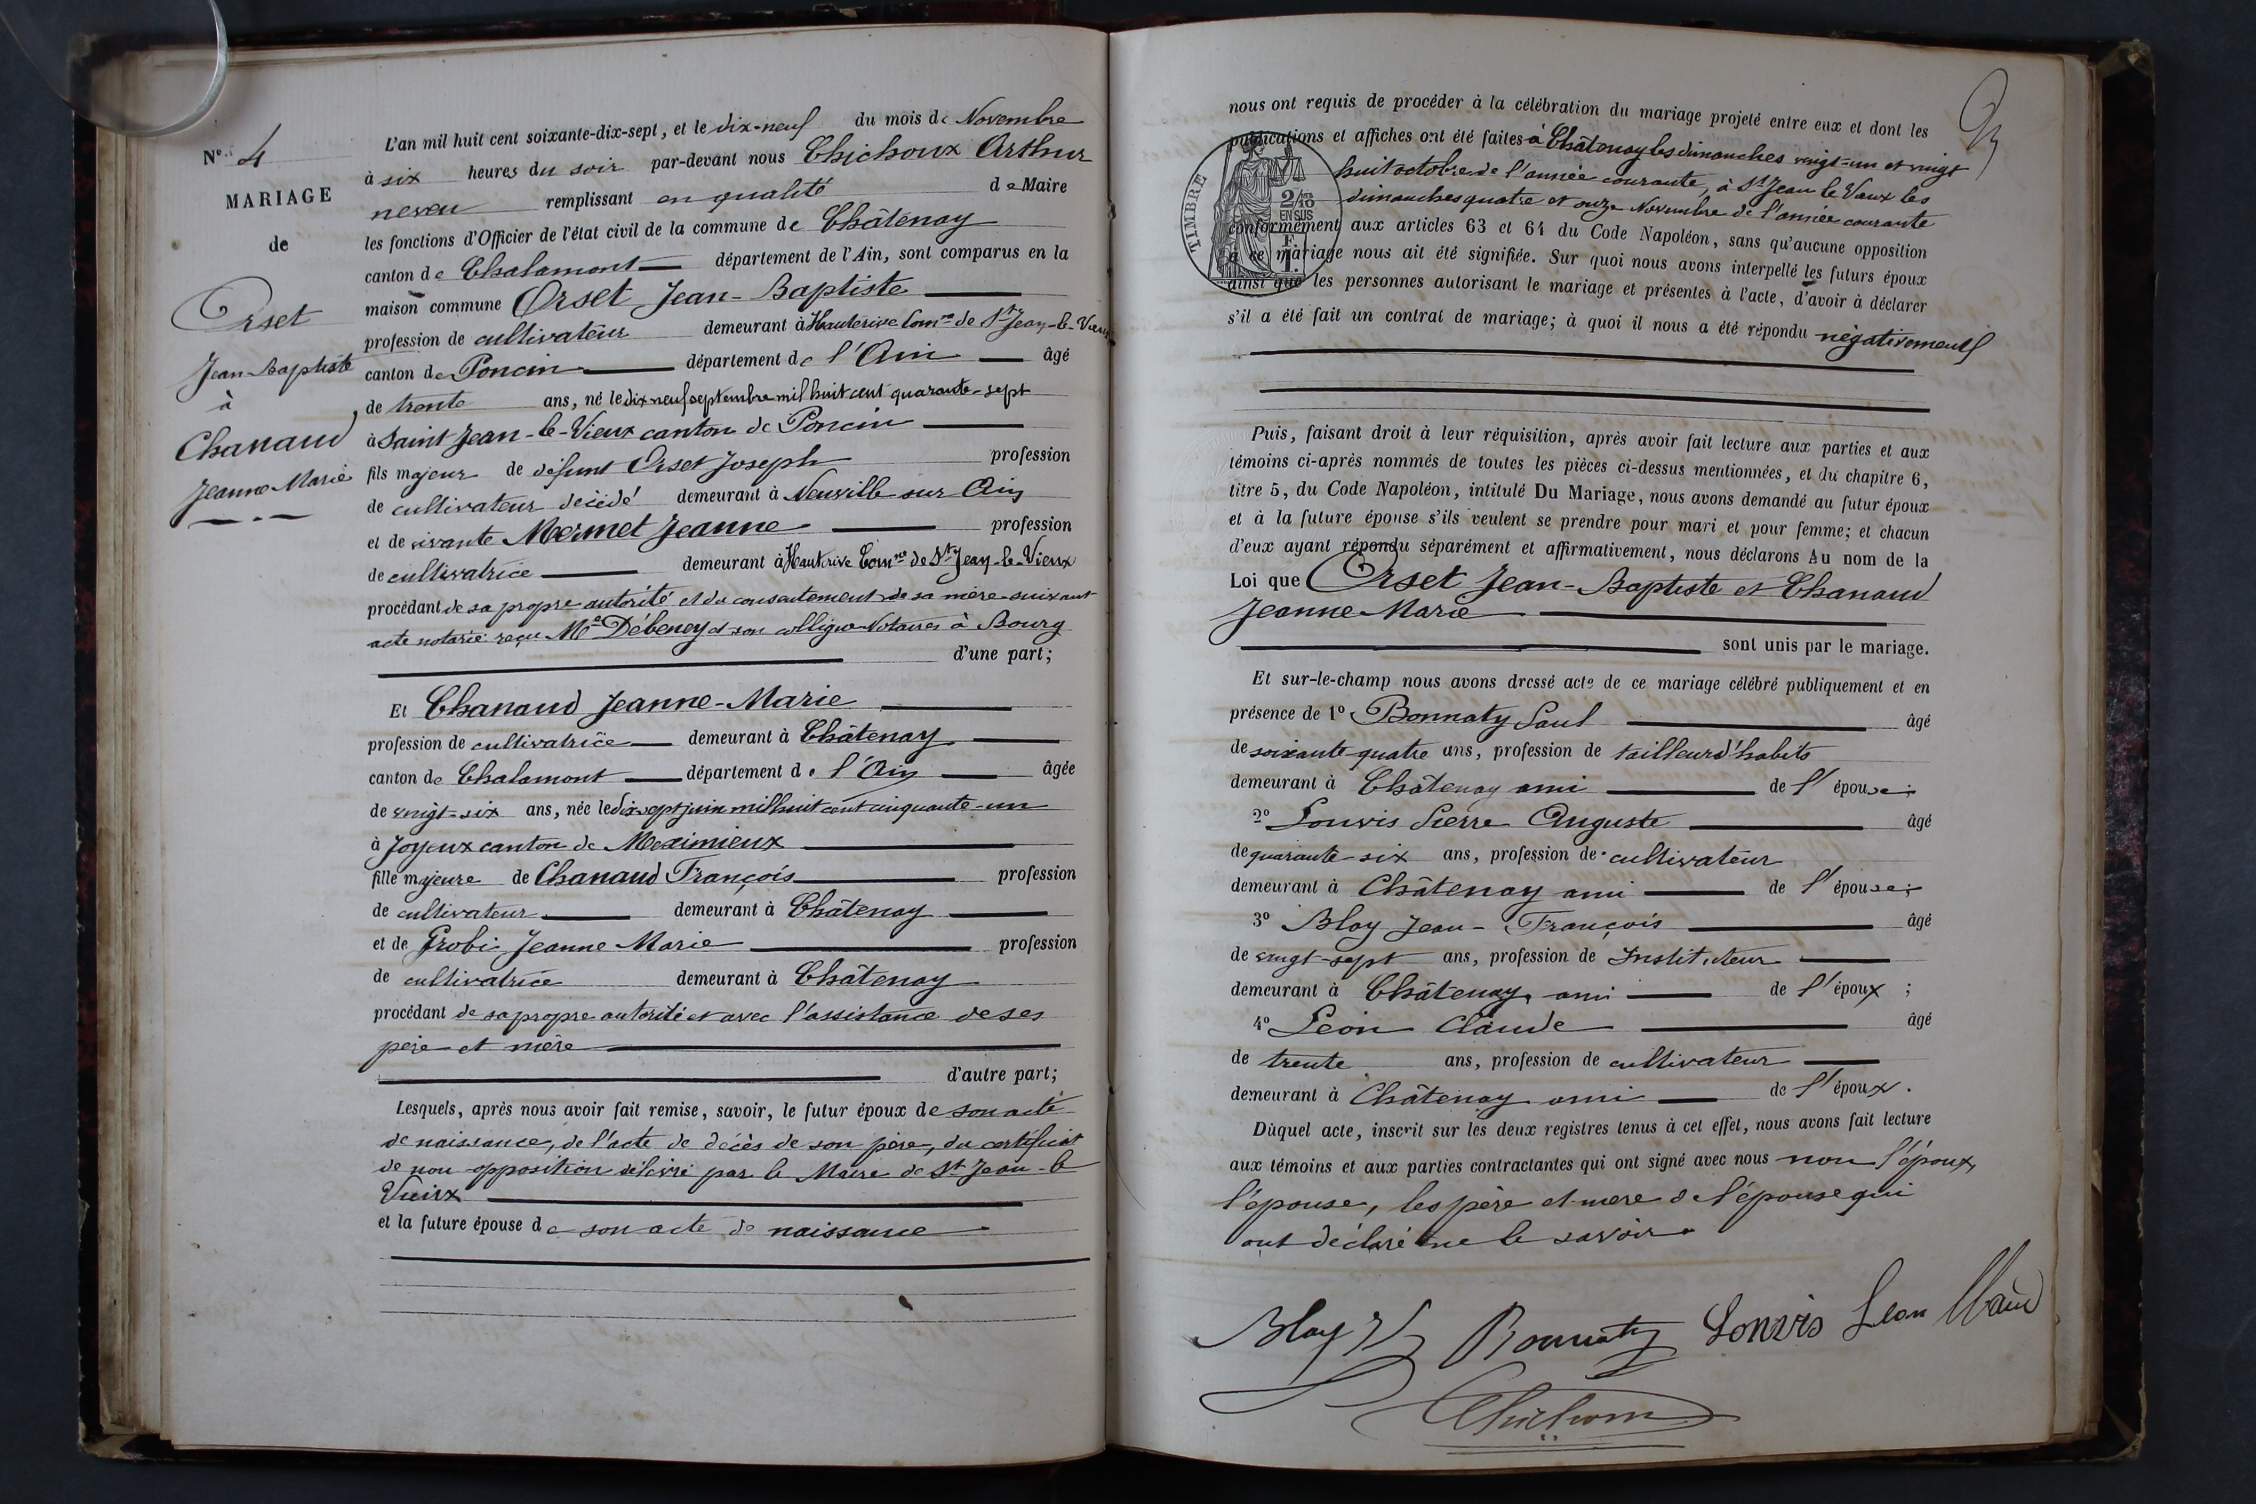 Nº 4
MARIAGE
de
Orset
Jean-Baptiste
à
Chanaud
Jeanne Marie
L'an mil huit cent soixante-dix-sept, et le dix-neuf du mois de Novembre
à six heures du soir par-devant nous Chichoux Arthur
neveu remplissant en qualité de Maire
les fonctions d'Officier de l'état civil de la commune de Châtenay
canton de Chalamont département de l'Ain, sont comparus en la
maison commune Orset Jean-Baptiste
profession de cultivateur demeurant à Hauterive Comne de St Jean-le-Vieux
canton de Poncin département de l'Ain âgé
de trente ans, né le dix neuf septembre mil huit cent quarante-sept
à Saint Jean-le-Vieux canton de Poncin
fils majeur de défunt Orset Joseph profession
de cultivateur décédé demeurant à Neuville sur Ain
et de vivante Mermet Jeanne profession
de cultivatrice demeurant à Hauterive Comne de St Jean-le-Vieux
procédant de sa propre autorité et du consentement de sa mère suivant
acte notarié reçu Me Débeney et son collègue Notaires à Bourg
d'une part;
Et Chanaud Jeanne-Marie
profession de cultivatrice demeurant à Châtenay
canton de Chalamont département de l'Ain âgée
de vingt-six ans, née le dix-sept juin mil huit cent cinquante-un
à Joyeux canton de Meximieux
fille majeure de Chanaud François profession
de cultivateur demeurant à Châtenay
et de Grobi Jeanne Marie profession
de cultivatrice demeurant à Châtenay
procédant de sa propre autorité et avec l'assistance de ses
père et mère
d'autre part;
Lesquels, après nous avoir fait remise, savoir, le futur époux de son acte
de naissance, de l'acte de décès de son père, du certificat
de non-opposition délivré par le Maire de St Jean-le
Vieux
et la future épouse de son acte de naissance
nous ont requis de procéder à la célébration du mariage projeté entre eux et dont les
publications et affiches ont été faites à Châtenay les dimanches vingt-un et vingt
huit octobre de l'année courante, à St Jean le Vieux les
dimanches quatre et onze Novembre de l'année courante
TIMBRE
2/10
EN SUS
1 F.
conformément aux articles 63 et 64 du Code Napoléon, sans qu'aucune opposition
à ce mariage nous ait été signifiée. Sur quoi nous avons interpellé les futurs époux
ainsi que les personnes autorisant le mariage et présentes à l'acte, d'avoir à déclarer
s'il a été fait un contrat de mariage; à quoi il nous a été répondu négativement
Puis, faisant droit à leur réquisition, après avoir fait lecture aux parties et aux
témoins ci-après nommés de toutes les pièces ci-dessus mentionnées, et du chapitre 6,
titre 5, du Code Napoléon, intitulé Du Mariage, nous avons demandé au futur époux
et à la future épouse s'ils veulent se prendre pour mari et pour femme; et chacun
d'eux ayant répondu séparément et affirmativement, nous déclarons Au nom de la
Loi que Orset Jean-Baptiste et Chanaud
Jeanne-Marie
sont unis par le mariage.
Et sur-le-champ nous avons dressé acte de ce mariage célébré publiquement et en
présence de 1º Bonnaty Paul âgé
de soixante quatre ans, profession de tailleur d'habits
demeurant à Châtenay ami de l'épouse;
2º Louvis Pierre Auguste âgé
de quarante-six ans, profession de cultivateur
demeurant à Châtenay ami de l'épouse;
3º Blay Jean-François âgé
de vingt-sept ans, profession de Instituteur
demeurant à Châtenay, ami de l'époux;
4º Léon Claude âgé
de trente ans, profession de cultivateur
demeurant à Châtenay ami de l'époux.
Duquel acte, inscrit sur les deux registres tenus à cet effet, nous avons fait lecture
aux témoins et aux parties contractantes qui ont signé avec nous non l'époux,
l'épouse, les père et mère de l'épouse qui
ont déclaré ne le savoir.
Blay Bonnaty Louvis Léon Claud
Chichoux